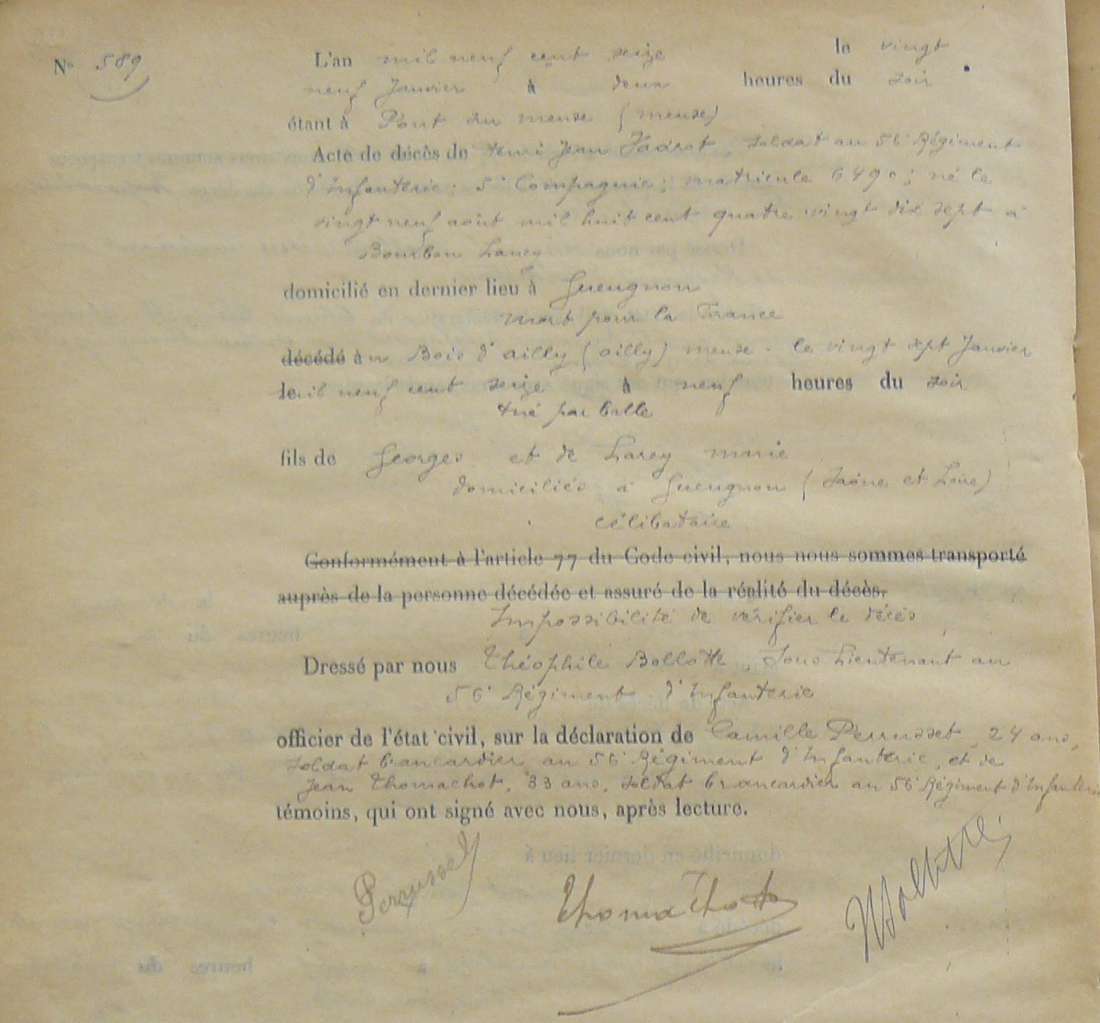 N° 589
L'an mil neuf cent seize le vingt
neuf Janvier à deux heures du soir
étant à Pont sur meuse (meuse)
Acte de décès de Henri Jean, soldat au 56e Régiment
d'Infanterie; 5e Compagnie; matricule 6490; né le
vingt neuf août mil huit cent quatre vingt dix sept à
Bourbon Lancy
domicilié en dernier lieu à Gueugnon
mort pour la France
décédé au Bois d'ailly (ailly) meuse. le vingt sept Janvier
le mil neuf cent seize à neuf heures du soir
tué par balle
fils de Georges et de Larey marie
domiciliés à Gueugnon (Saône et Loire)
célibataire
Conformément à l'article 77 du Code civil, nous nous sommes transporté
auprès de la personne décédée et assuré de la réalité du décès.
Impossibilité de vérifier le décès
Dressé par nous Théophile Bollotte, Sous Lieutenant au
56e Régiment d'Infanterie
officier de l'état civil, sur la déclaration de Camille Perrusset, 24 ans,
soldat brancardier au 56e Régiment d'Infanterie, et de
Jean Thomachot, 33 ans, soldat brancardier au 56e Régiment d'Infanterie
témoins, qui ont signé avec nous, après lecture.
Perrusset Thomachot